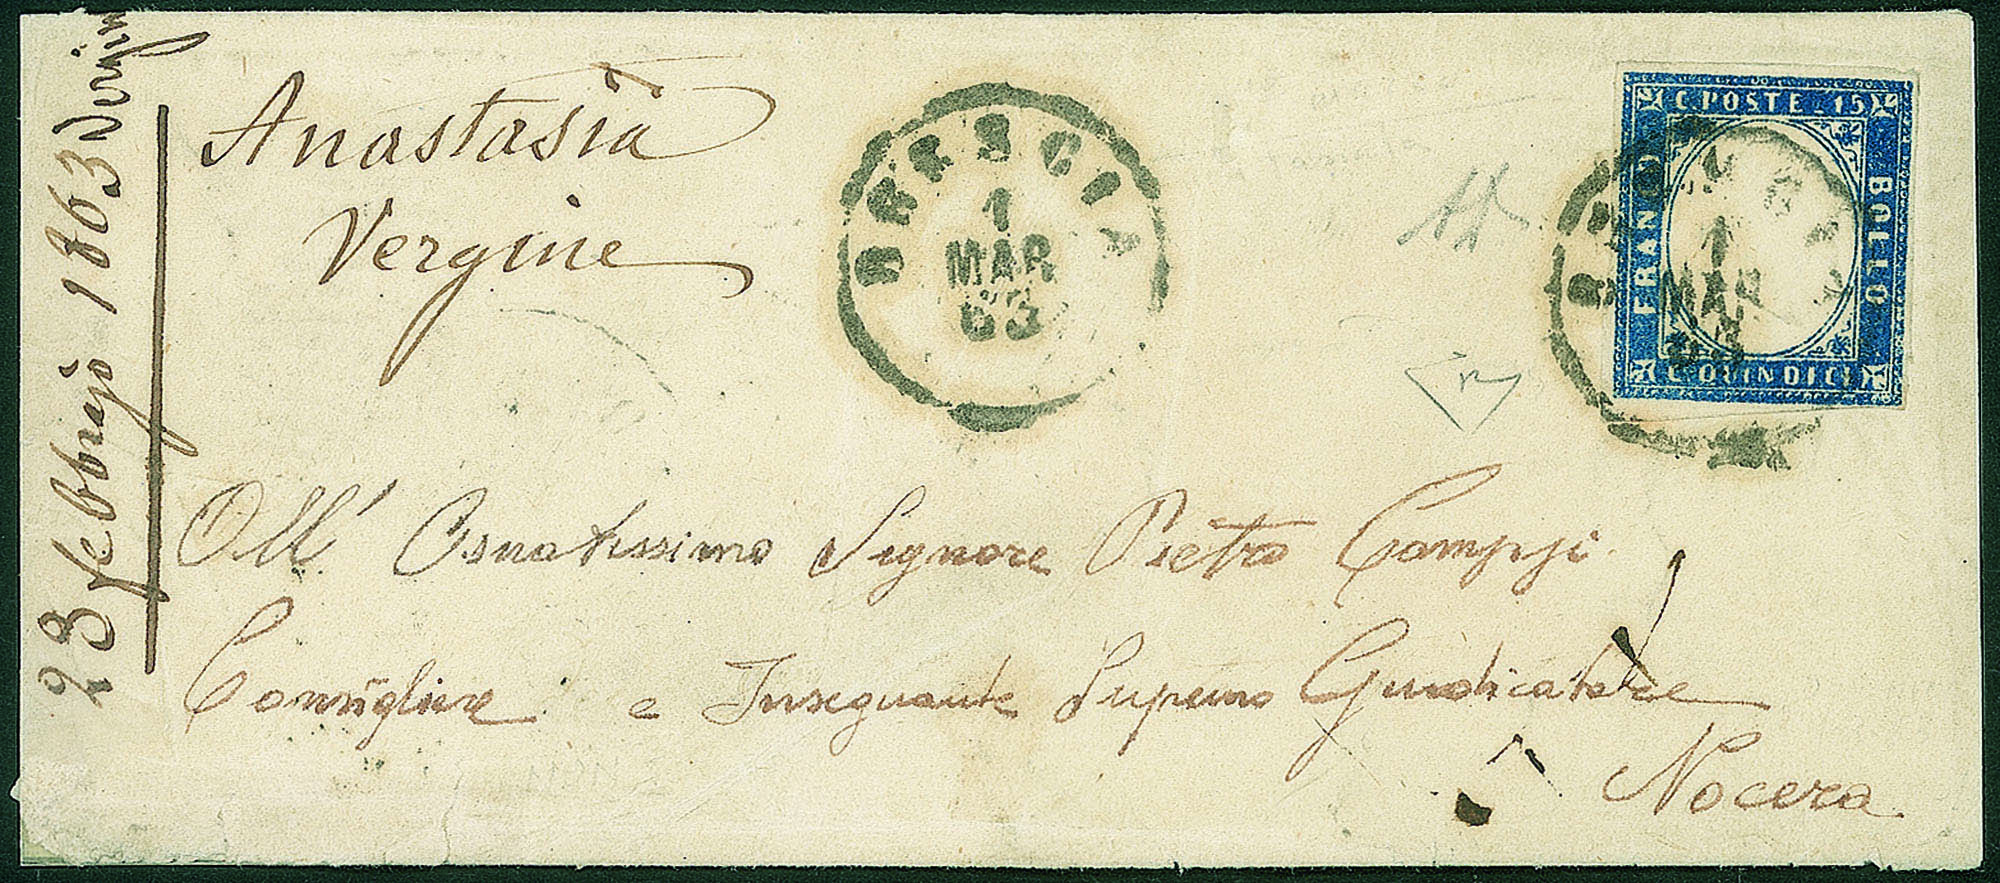 23 febbrajo 1863
Anastasia
Vergine
BRESCIA
1
MAR
63
C. POSTE 15
FRANCO
BOLLO
C. QUINDICI
BRESCIA
1
MAR
63
All' Ornatissimo Signore Pietro
Consigliere e Insegnante Supremo Giudicatore
Nocera